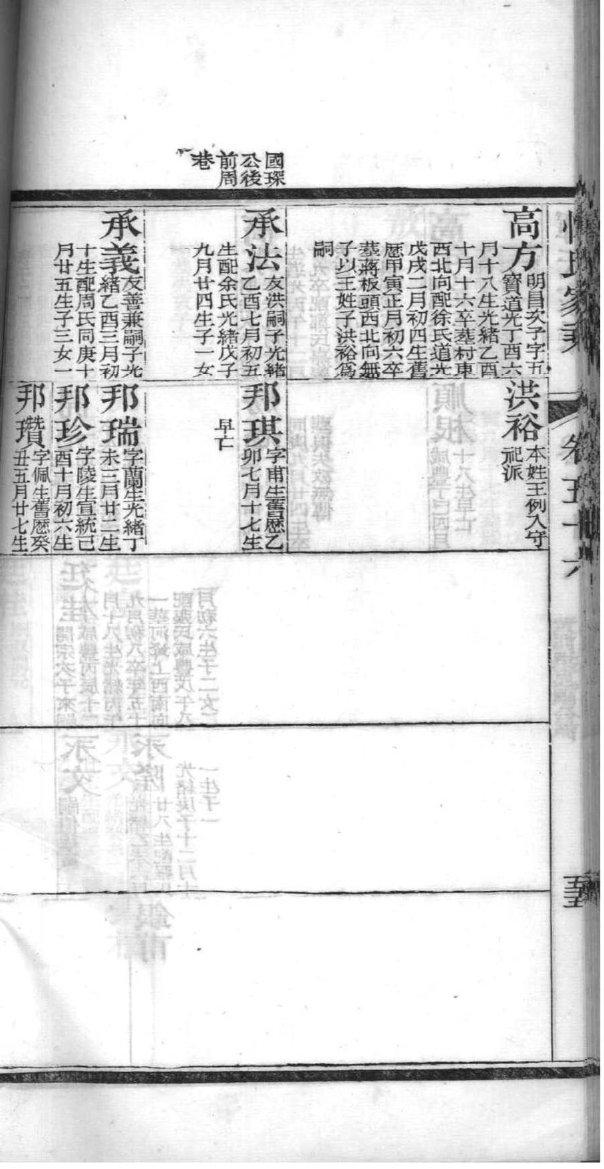 國琛
公後
前周
巷
高方
明昌次子字五
寶道光丁酉六
月十八生光緒乙酉
十月十六卒墓村東
西北向配徐氏道光
戊戌二月初四生舊
厯甲寅正月初六卒
墓蔣板頭西北向無
子以王姓子洪裕爲
嗣
承法
友洪嗣子光緒
乙酉七月初五
生配余氏光緒戊子
九月廿四生子一女
承義
友善兼嗣子光
緒乙酉三月初
十生配周氏同庚十
月廿五生子三女一
洪裕
本姓王例入守
祀派
邦琪
字甫生舊厯乙
卯七月十七生
早亡
邦瑞
字蘭生光緒丁
未三月廿二生
邦珍
字陵生宣統己
酉十月初六生
邦瓚
字佩生舊厯癸
丑五月廿七生
氏家乘
卷五十六